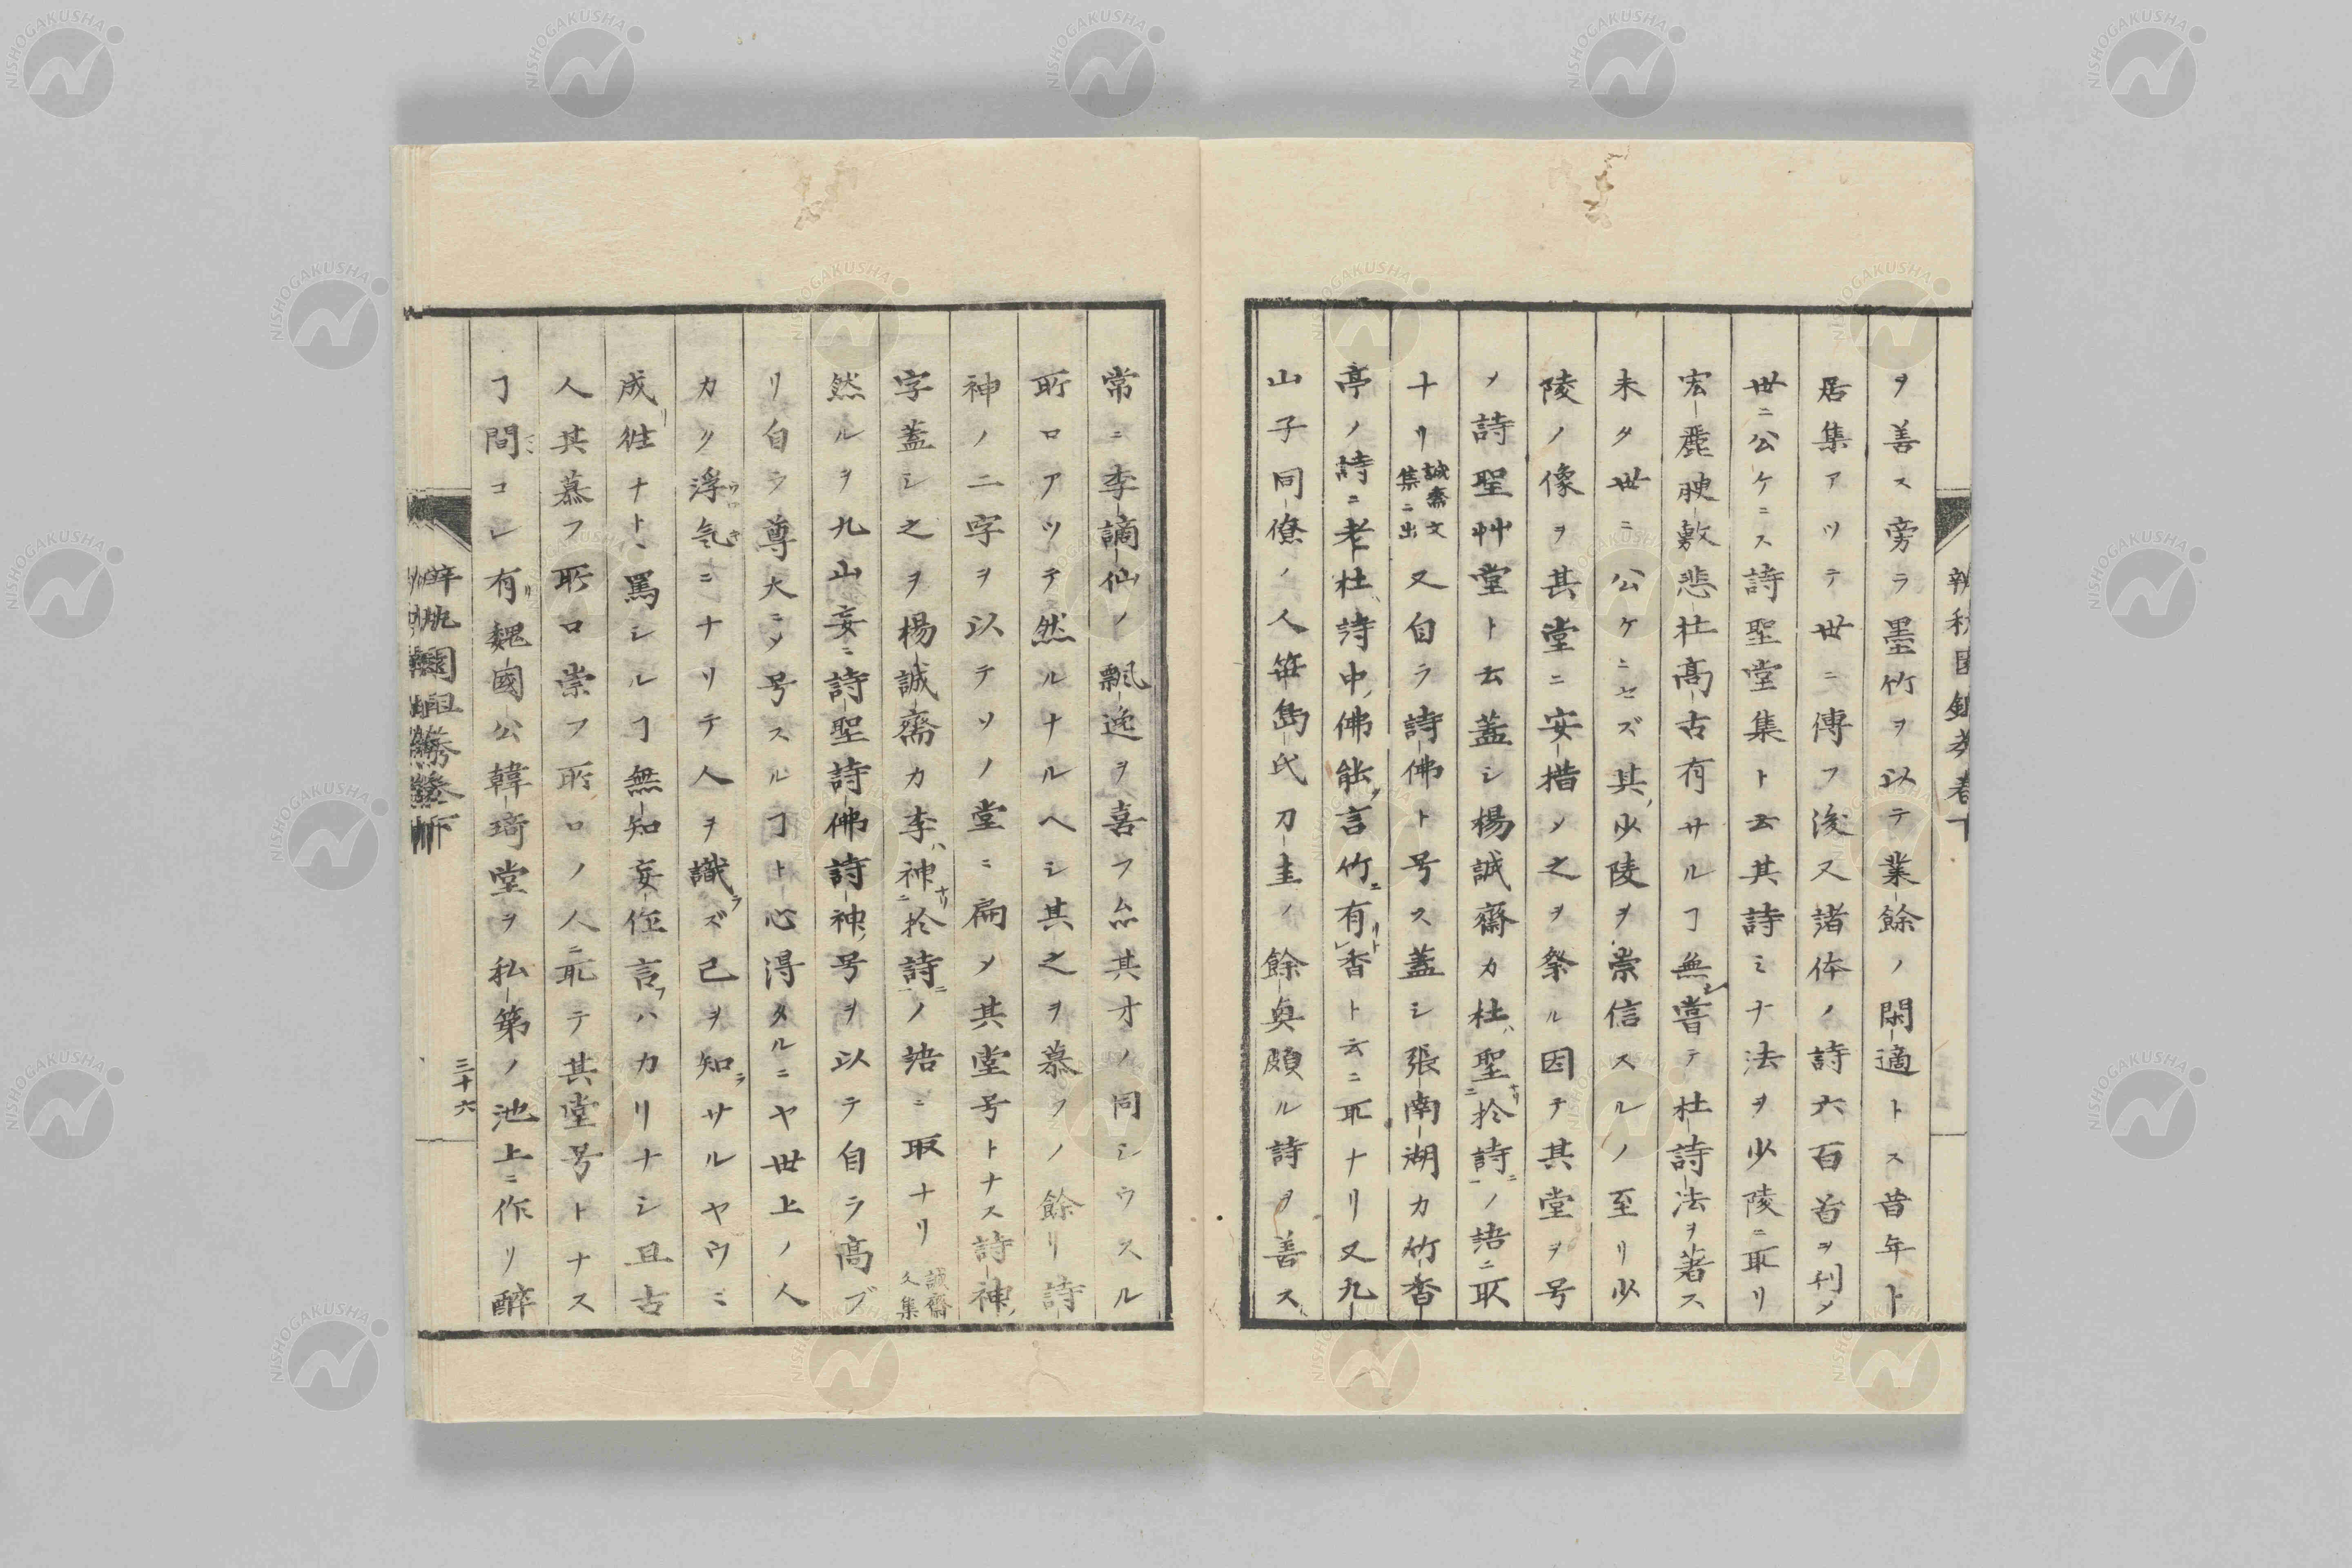 ヲ善ス旁ラ墨竹ヲ以テ業餘ノ閑適トス昔年ト
居集アツテ世ニ傳フ後又諸体ノ詩六百首ヲ刊メ
世ニ公ケニス詩聖堂集ト云其詩ミナ法ヲ少陵ニ取リ
宏麗腴敷悲壮高古有サルヿ無シ嘗テ杜詩法ヲ著ス
未タ世ニ公ケニセズ其少陵ヲ崇信スルノ至リ少
陵ノ像ヲ其堂ニ安措メ之ヲ祭ル因テ其堂ヲ号
メ詩聖艸堂ト云蓋シ楊誠齋カ杜ハ聖ナリ於詩ニノ語ニ取
ナリ誠齋文集ニ出又自ラ詩佛ト号ス蓋シ張南湖カ竹香
亭ノ詩ニ老杜詩中佛能言竹ニ有リト香ト云ニ取ナリ又九
山子同僚ノ人笹島氏刀圭ノ餘奥頗ル詩ヲ善ス
常ニ李謫仙ノ飄逸ヲ喜フ其才ノ同シウスル
所ロアツテ然ルナルヘシ其之ヲ慕フノ餘リ詩
神ノ二字ヲ以テソノ堂ニ扁メ其堂号トナス詩神ノ
字蓋シ之ヲ楊誠齋カ李ハ神ナリ於詩ニノ語ニ取ナリ誠齋文集
然ルヲ九山妄ニ詩聖詩佛詩神ノ号ヲ以テ自ラ高ブ
リ自ラ尊大ニメ号スルヿト心得タルニヤ世上ノ人
カ浮気ニナリテ人ヲ識ラズ己ヲ知ラサルヤウミ
成リ徃ナト丶罵シルヿ無知妄作言フハカリナシ且古
人其慕フ所ロ崇フ所ロノ人ニ取テ其堂号トナス
ヿ間コレ有リ魏國公韓琦堂ヲ私第ノ池上ニ作リ醉
三十六